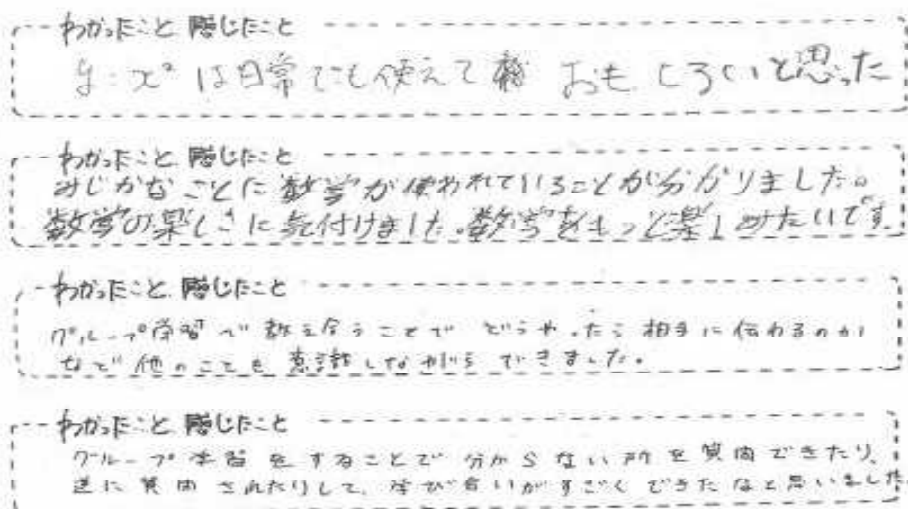 わかったこと 感じたこと
y=x² は日常でも使えて おもしろいと思った
わかったこと 感じたこと
みじかなことに数学が使われていることが分かりました。
数学の楽しさに気付けました。数学をもっと楽しみたいです。
わかったこと 感じたこと
グループ学習で教え合うことで どうやったら相手に伝わるのか
など他のことも意識しながらできました。
わかったこと 感じたこと
グループ学習をすることで分からない所を質問できたり、
逆に質問されたりして、学び合いがすごくできたなと思いました。